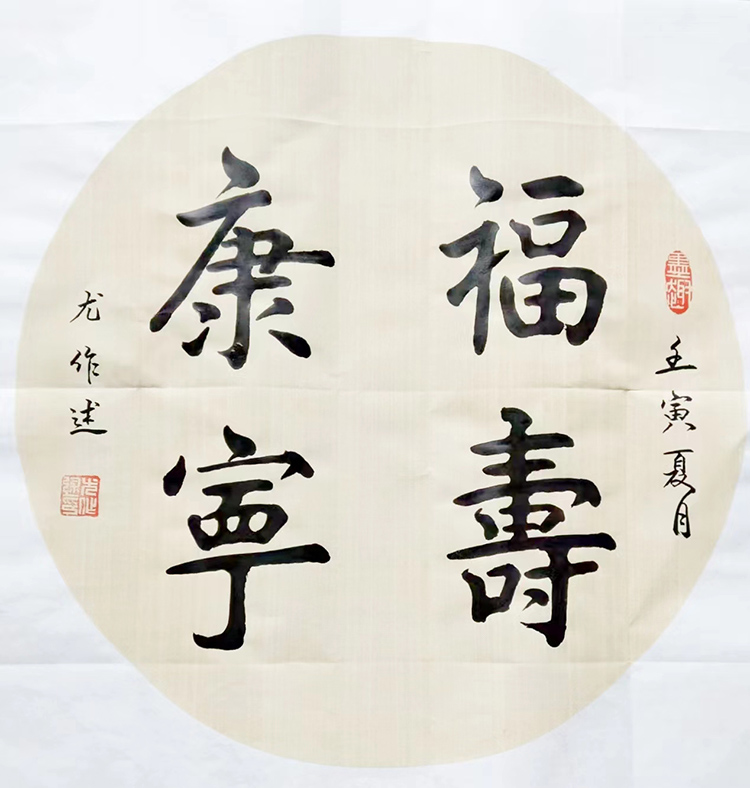 福壽
康寧
壬寅夏月
尤作述
墨趣